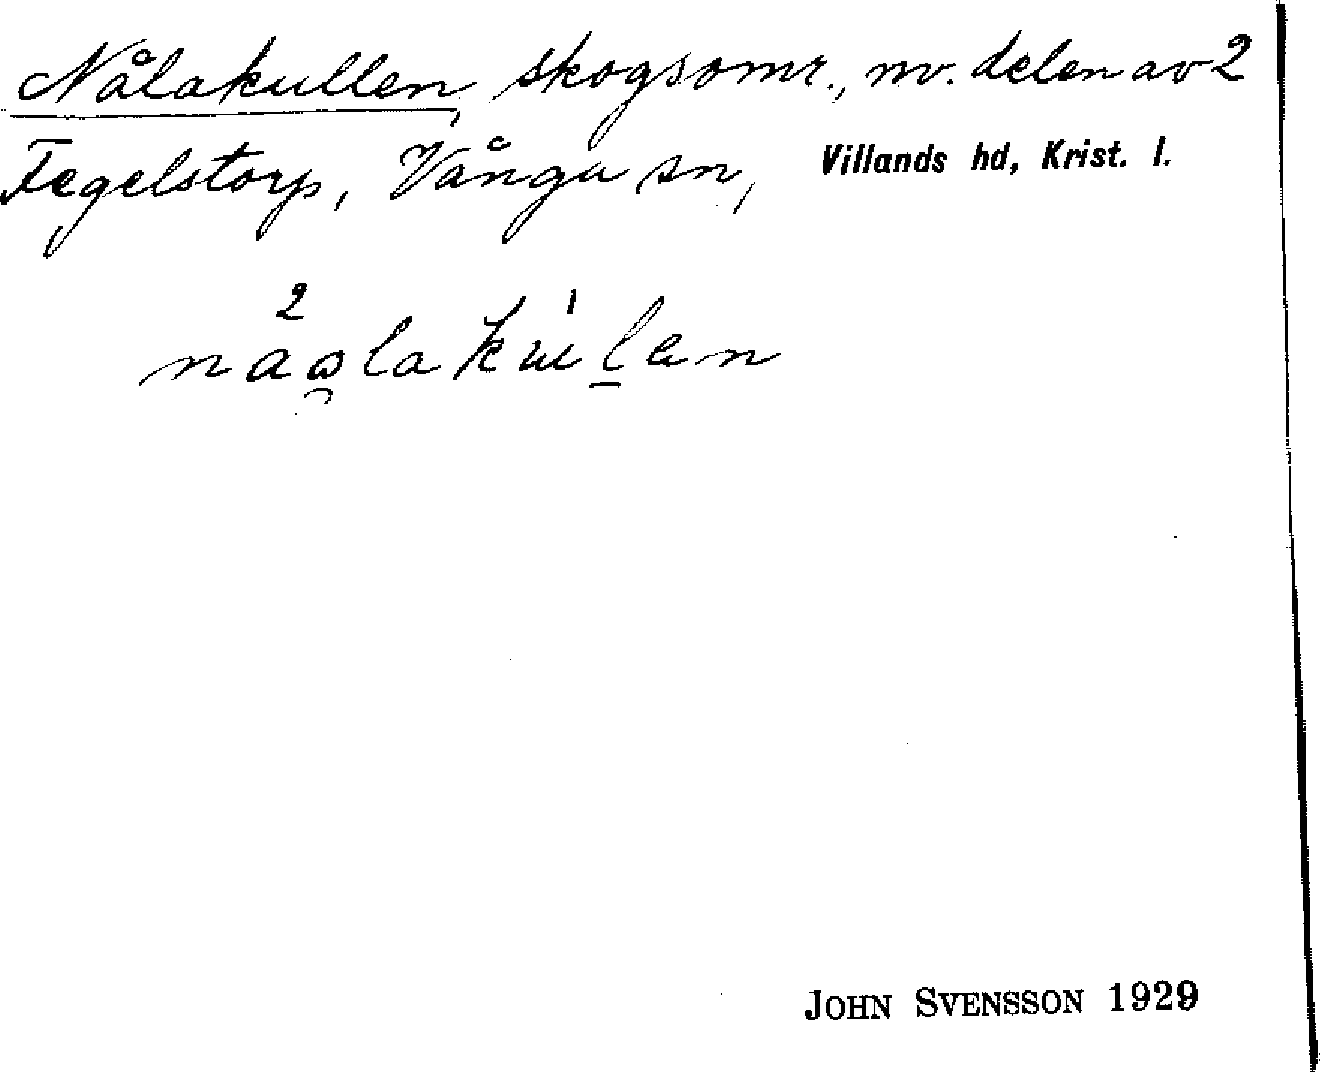 Nålakullen, skogsomr., nv. delen av 2
Tegelstorp, Vånga sn, Villands hd, Krist. l.
JOHN SVENSSON 1929